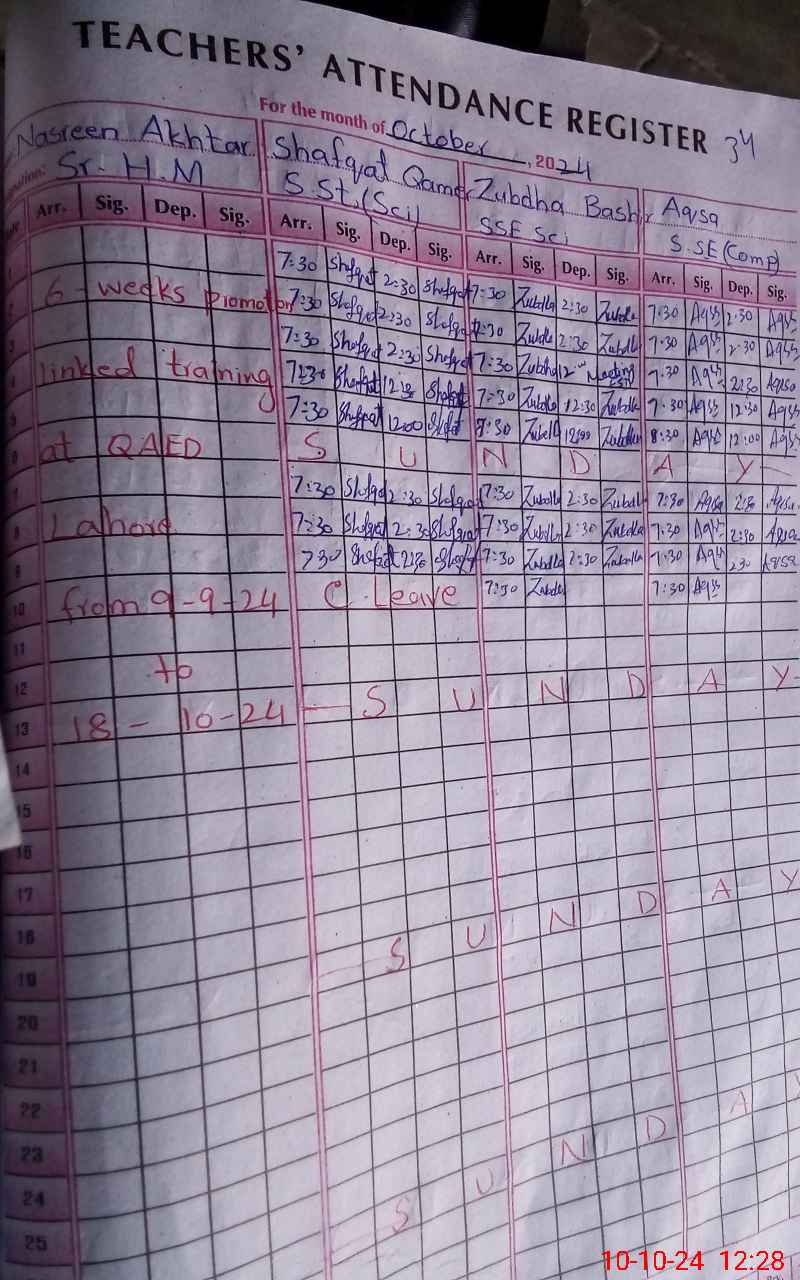 TEACHERS' ATTENDANCE REGISTER 34
For the month of October, 2024
Nasreen Akhtar Shafqat Qamar Zubdha Bashir Aqsa
Sr. H.M S.St.(Sci) SSE Sci S.SE (Comp)
Arr. Sig. Dep. Sig. Arr. Sig. Dep. Sig. Arr. Sig. Dep. Sig. Arr. Sig. Dep. Sig.
7:30 Shafqat 2:30 Shafqat 7:30 Zubdha 2:30 Zubdha 7:30 Aqsa 2:30 Aqsa
6-weeks promotion 7:30 Shafqat 2:30 Shafqat 7:30 Zubdha 2:30 Zubdha 7:30 Aqsa 2:30 Aqsa
7:30 Shafqat 2:30 Shafqat 7:30 Zubdha 12 Meeting 7:30 Aqsa 2:30 Aqsa
linked training 7:30 Shafqat 12:30 Shafqat 7:30 Zubdha 12:30 Zubdha 7:30 Aqsa 12:30 Aqsa
7:30 Shafqat 12:00 Shafqat 7:30 Zubdha 12:00 Zubdha 8:30 Aqsa 12:00 Aqsa
6 at QAED S U N D A Y
7 7:30 Shafqat 2:30 Shafqat 7:30 Zubdha 2:30 Zubdha 7:30 Aqsa 2:30 Aqsa
8 Lahore 7:30 Shafqat 2:30 Shafqat 7:30 Zubdha 2:30 Zubdha 7:30 Aqsa 2:30 Aqsa
9 730 Shafqat 2:30 Shafqat 7:30 Zubdha 2:30 Zubdha 7:30 Aqsa 230 Aqsa
10 from 9-9-24 C. Leave 7:30 Zubdha 7:30 Aqsa
11
12 to
13 18-10-24 S U N D A Y
14
15
16
17
18 S U N D A Y
19
20
21
22
23
24 S U N D A Y
25
10-10-24 12:28